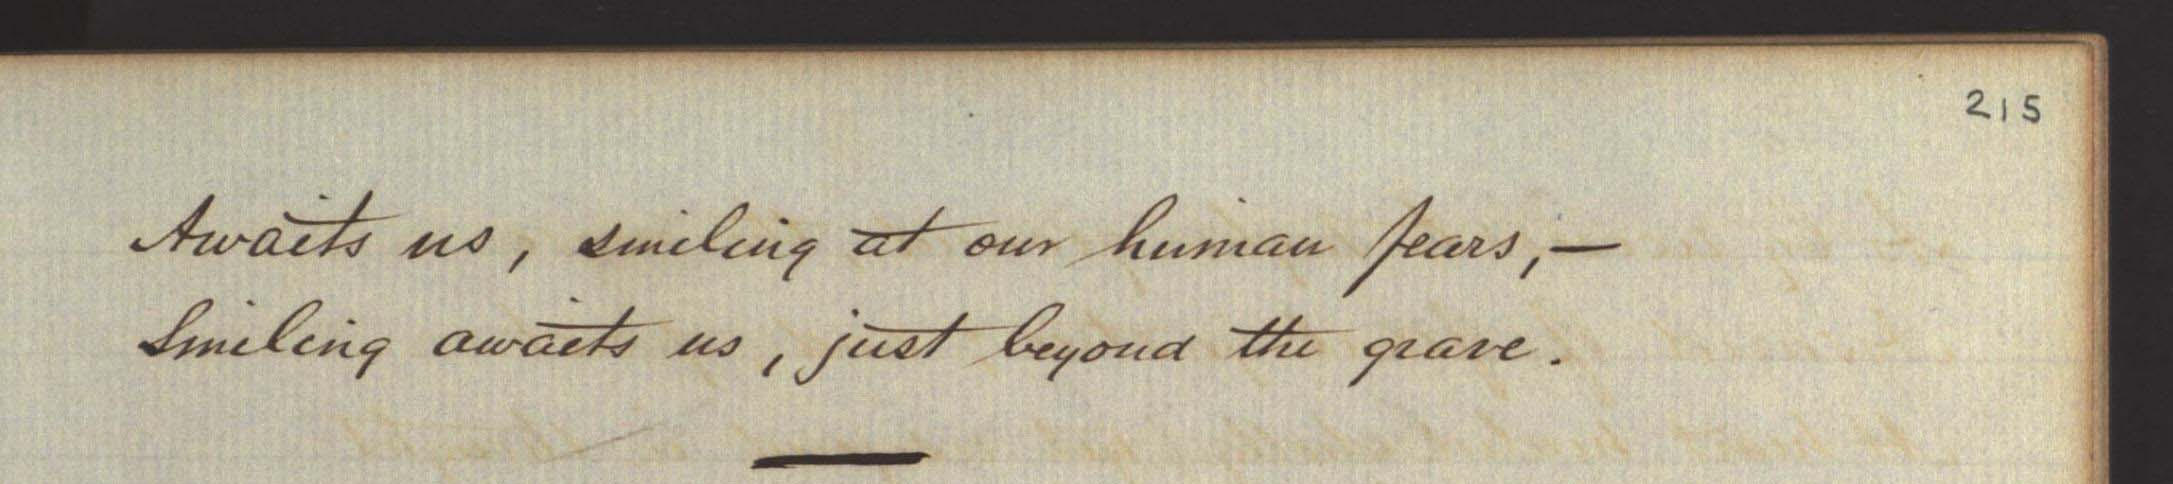 215
Awaits us, smiling at our human fears,—
Smiling awaits us, just beyond the grave.